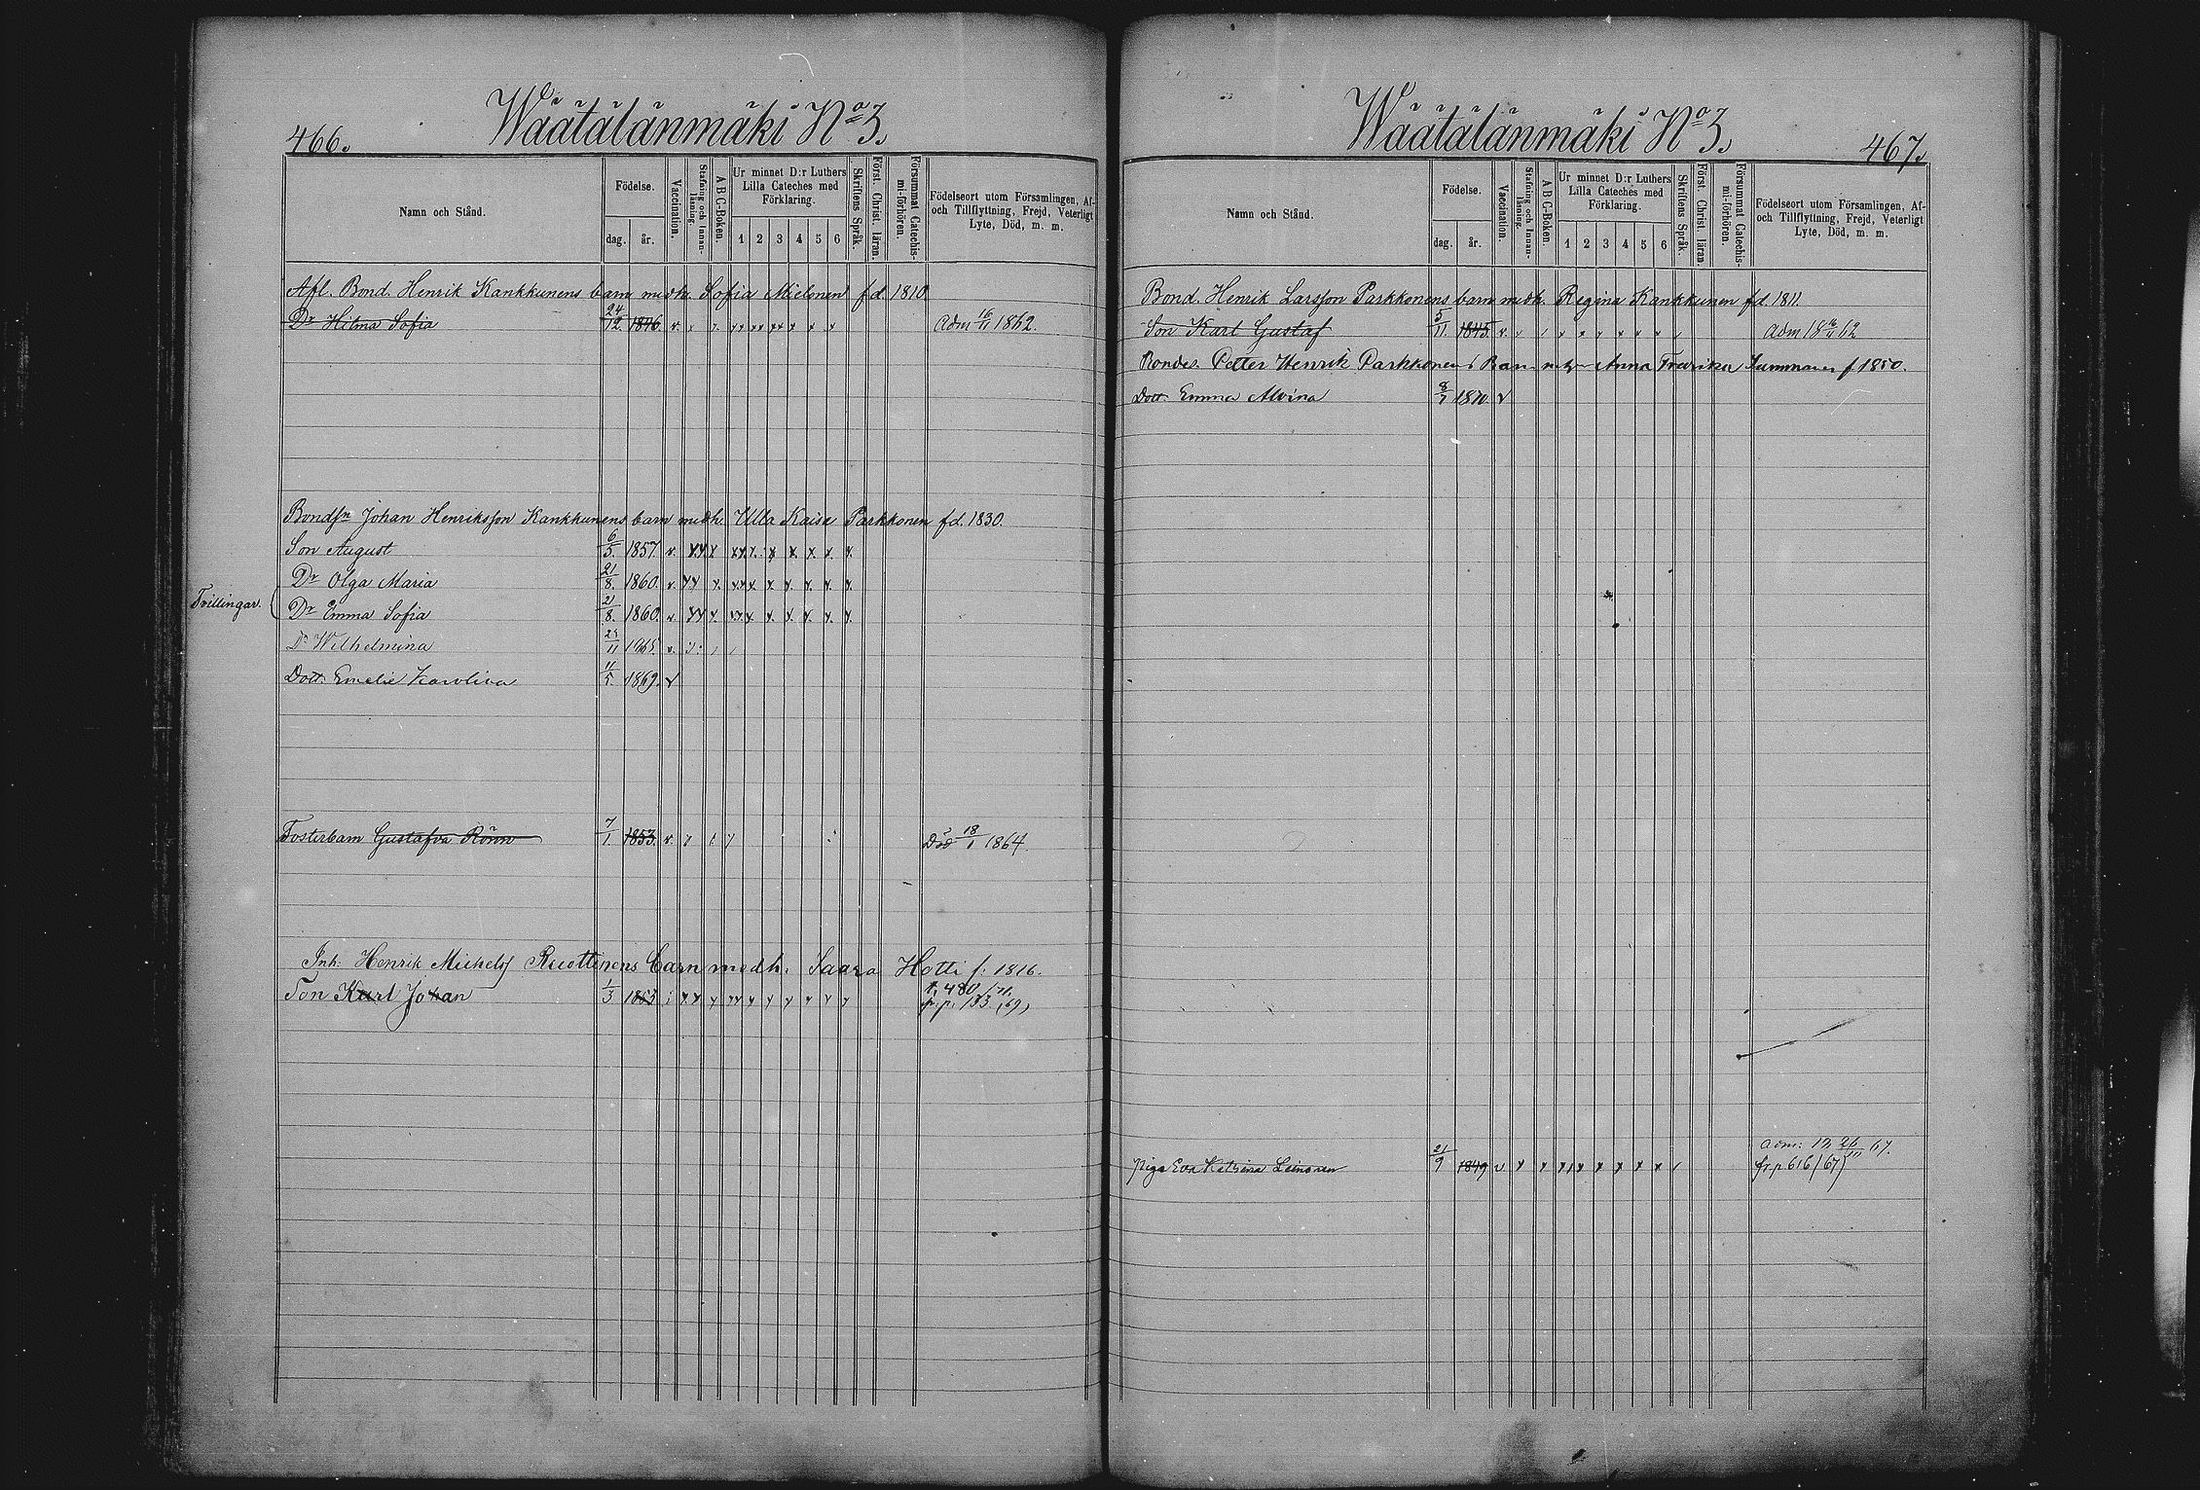 466.
Wäätälänmäki No 3.
Namn och Stånd.
Födelse.
dag.
år.
Vaccination.
Stafning och Innan-läsning.
A B C-Boken.
Ur minnet D:r Luthers Lilla Cateches med Förklaring.
1 2 3 4 5 6
Skriftens Språk.
Först. Christ. läran.
Försummat Catechis-mi-förhören.
Födelseort utom Församlingen, Af- och Tillflyttning, Frejd, Veterligt Lyte, Död, m. m.
Afl. Bond. Henrik Kankkunens barn medh. Sofia Mielonen fd. 1810.
Dr Hilma Sofia 24/12. 1846. v. Adm 16/11 1862.
Bondsn Johan Henriksson Kankkunens barn medh. Ulla Kaisa Parkkonen fd. 1830.
Son August 6/5. 1857. v.
Tvillingar.
Dr Olga Maria 21/8. 1860. v.
Dr Emma Sofia 21/8. 1860. v.
Dr Wilhelmina 11 1865. v.
Dott. Emelie Karolina 11/5. 1869. v
Fosterbarn Gustafva Rönn 7/1. 1853. v. Död 18/1 1864.
Inh. Henrik Michelsf Ruottinens barn medh. Saara Hotti f. 1816.
Son Karl Johan 1/3 1853 t. 480 /71.
fr. p. 133 (69)
Wäätälänmäki No 3.
467.
Namn och Stånd.
Födelse.
dag.
år.
Vaccination.
Stafning och Innan-läsning.
A B C-Boken.
Ur minnet D:r Luthers Lilla Cateches med Förklaring.
1 2 3 4 5 6
Skriftens Språk.
Först. Christ. läran.
Försummat Catechis-mi-förhören.
Födelseort utom Församlingen, Af- och Tillflyttning, Frejd, Veterligt Lyte, Död, m. m.
Bond. Henrik Larsson Parkkonens barn medh. Regina Kankkunen fd. 1811.
Son Karl Gustaf 5/11. 1845. v. Adm 18 16/11 62
Bondes. Petter Henrik Parkkonens Barn Anna Fredrika f 1850.
Dott. Emma Alvina 8/7 1870. v
Piga Eva Katrina Leinonen 21/9 1849 v adm: 12 26/11 67.
fr. p 616 (67)